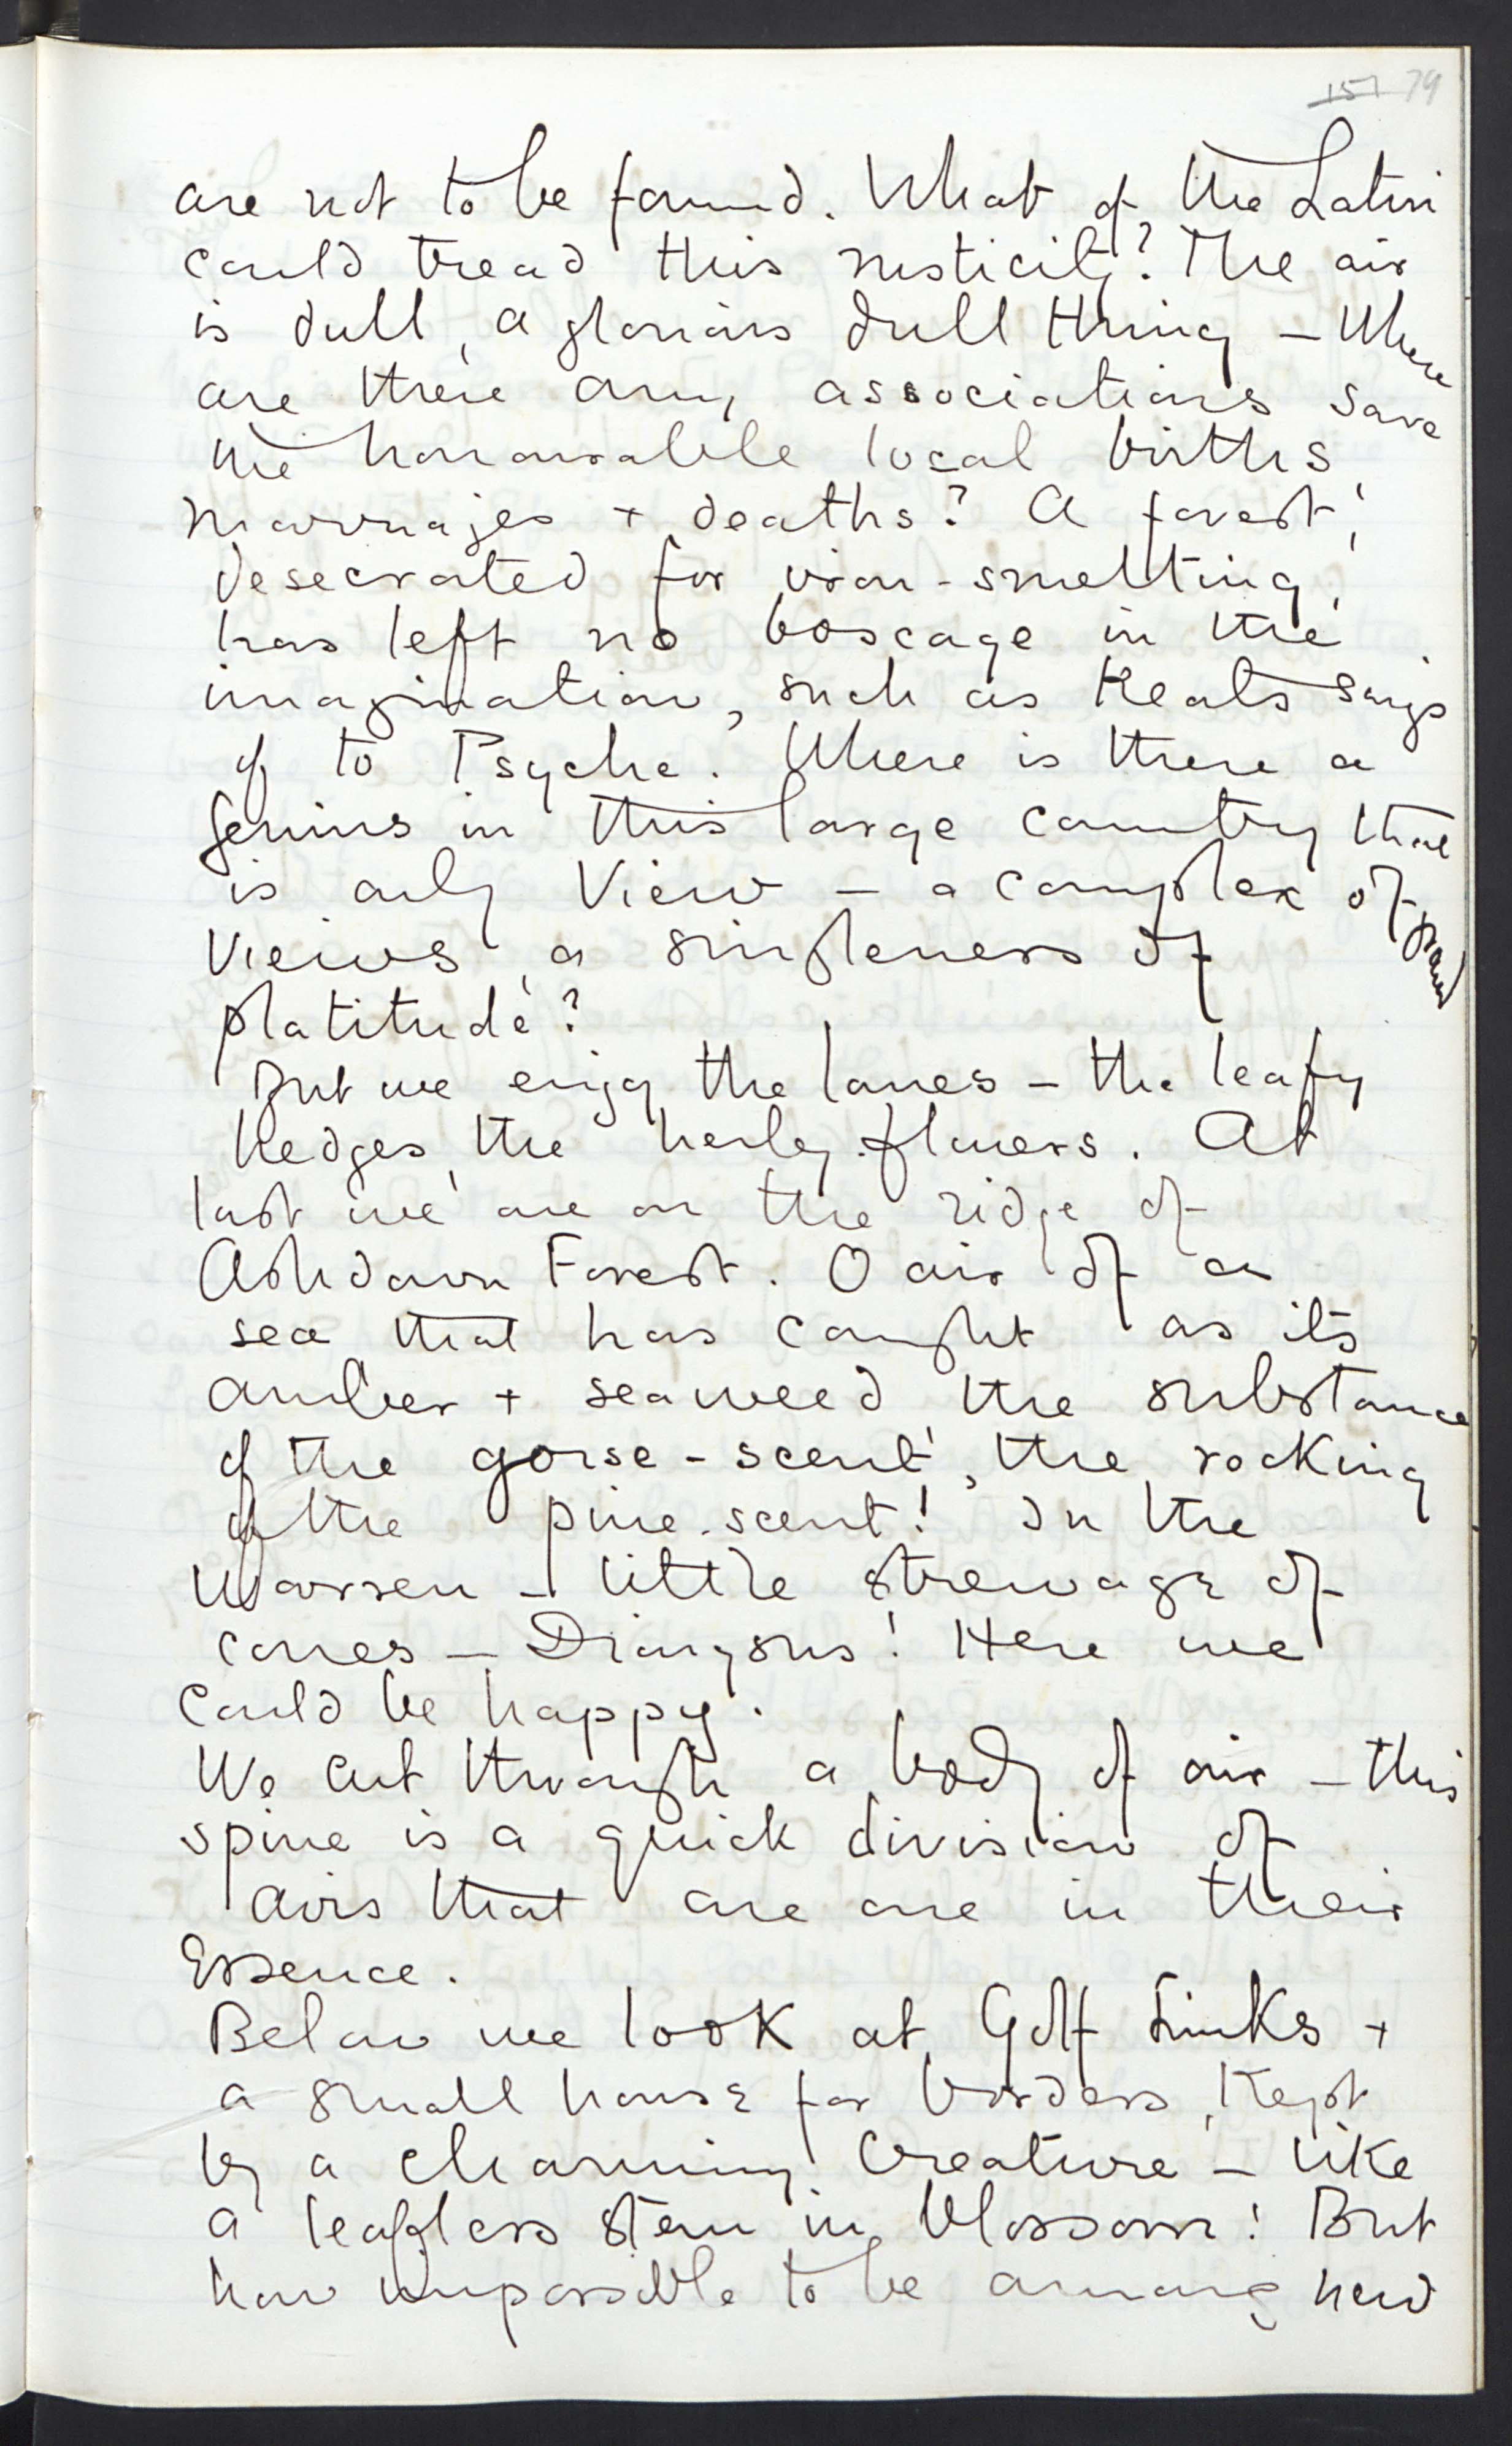 151 79
are not to be found. What of the Latin
could tread this rusticity? The air
is dull, a glorious dull thing – Where
are there any associations save
the honourable local births,
marriages + deaths? A forest,
desecrated for iron-smelting,
has left no boscage in the
imagination, such as Keats sings
of to Psyche. Where is there a
genius in this large country that
is only View – a complex of grand
Views, a singleness of
platitude?
But we enjoy the lanes – the leafy
hedges, the hedge-flowers. At
last we are on the ridge of
Ashdown Forest. O air of a
sea that has caught as its
amber + seaweed the substance
of the gorse-scent, the rocking
of the pine-scent! In the
Warren – little strewage of
cones – Dionysus! Here we
could be happy.
We cut through a body of air – this
spine is a quick division of
airs that are one in their
Essence.
Below we look at Golf Links +
a small house for boarders, kept
by a charming Creature – like
a leafless stem in blossom! But
how impossible to be among new